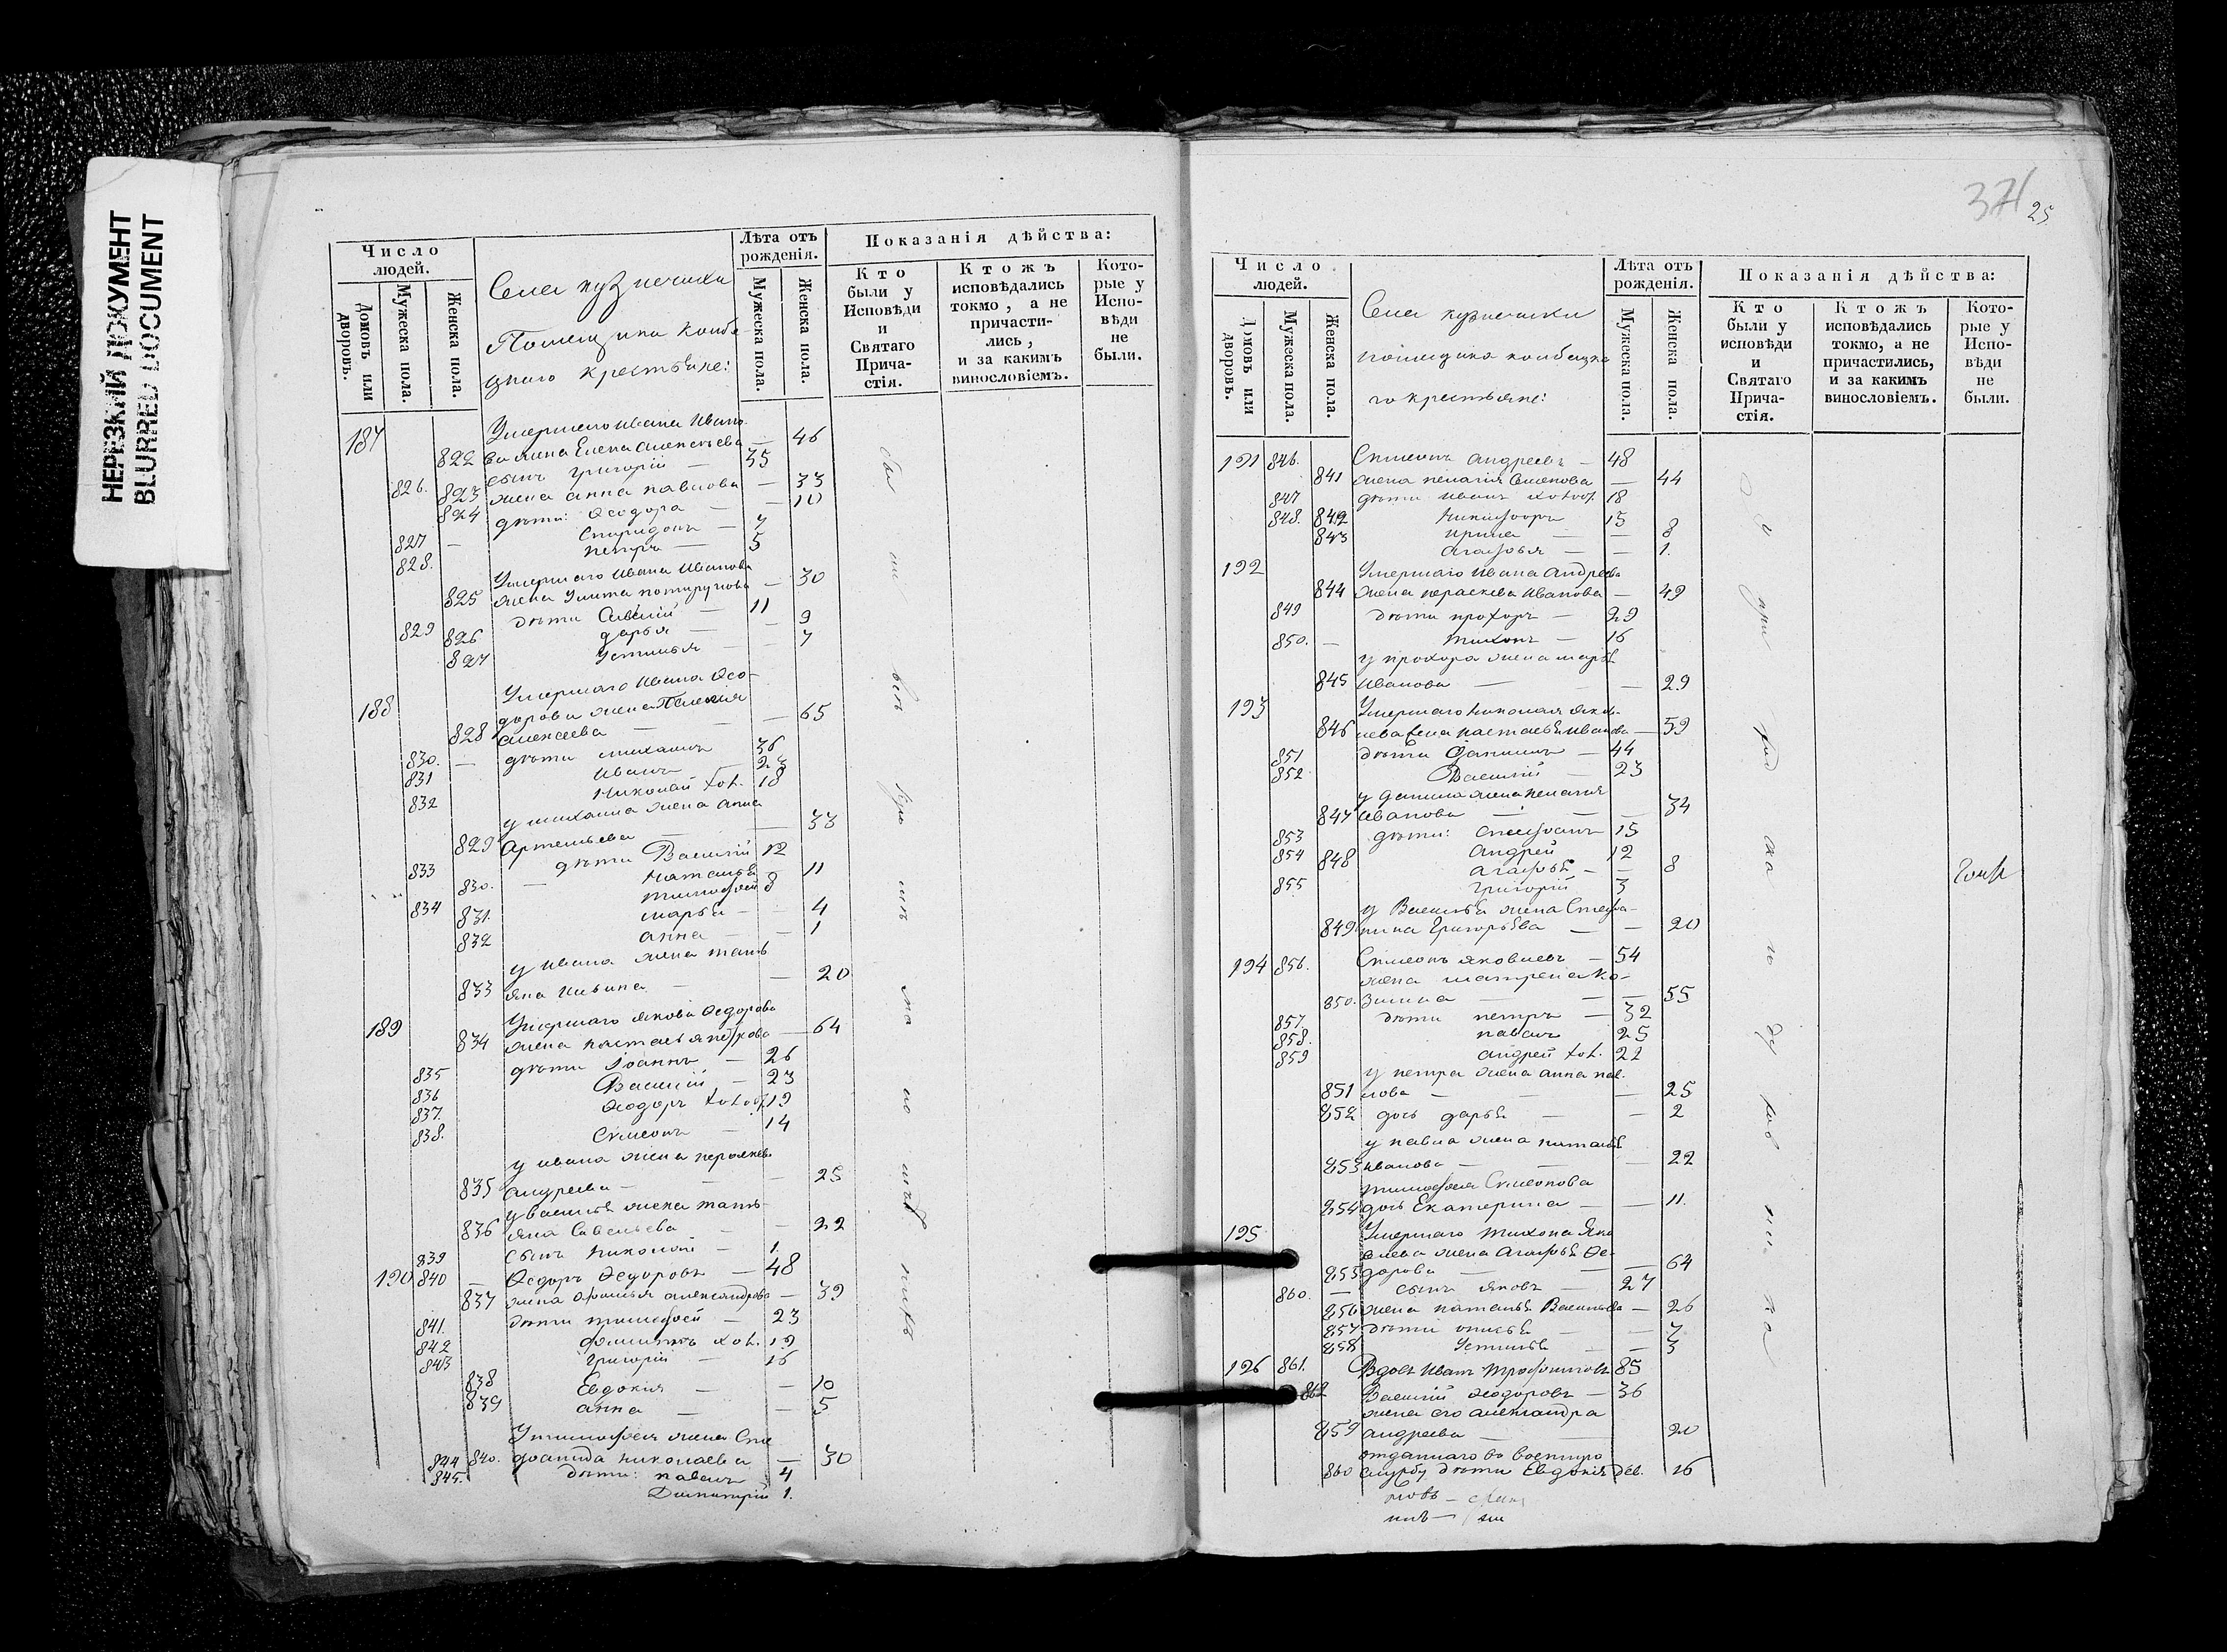 НЕРЕЗКИЙ ДОКУМЕНТ
BLURRED DOCUMENT
Число людей.
Домовъ или дворовъ.
Мужеска пола.
Женска пола.
Села
Помещика
крестьяне:
Лѣта отъ рожденія.
Мужеска пола.
Женска пола.
Показанія дѣйства:
Кто были у Исповѣди и Святаго Причастія.
Ктожъ исповѣдались токмо, а не причастились, и за какимъ винословіемъ.
Которые у Исповѣди не были.
187 Умершаго Ивана Ивано-
822 ва жена Елена — 46
826. сынъ Григорій — 35
823 жена анна павлова — 33
824 дѣти: Ѳеодора — 10
827 — Спиридонъ — 7
828. петръ — 5
Умершаго Ивана Иванова
825 жена Улита — 30
829 дѣти Савелій — 11
826 дарья — 9
827 Устинья — 7
188 Умершаго Ивана Ѳео-
дорова жена Пелагия
828 алексеева — 65
830. — дѣти михаилъ 36
831 Иванъ 23
832 Николай 18
у михаила жена анна
829 Артемьева — 33
833 дѣти Василій 12
830. — Наталья 11
834 тимофей 8
831. марья — 4
832 анна — 1
у ивана жена тать
833 яна — 20
189 Умершаго якова Ѳедорова
834 жена настасья — 64
835 дѣти Іоаннъ — 26
836 Василій — 23
837. Ѳеодоръ 19
838. Симеонъ — 14
у ивана жена
835 андреева — 25
у василья жена тать
836 яна Савельева — 22
839 сынъ николай — 1.
190 840 — Ѳедоръ Ѳедоровъ — 48
837 жена александрова — 39
841. дѣти тимофей — 23
842 19
843 Григорій — 16
838 Евдокия — 10
839 анна — 5
У тимофея жена Сте
844 840. фанида николаева — 30
845. дѣти: павелъ 4
Димитрій 1.
371
25
Число людей.
Домовъ или дворовъ.
Мужеска пола.
Женска пола.
Села
помещика
го крестьяне:
Лѣта отъ рожденія.
Мужеска пола.
Женска пола.
Показанія дѣйства:
Кто были у исповѣди и Святаго Причастія.
Ктожъ исповѣдались токмо, а не причастились, и за какимъ винословіемъ.
Которые у Исповѣди не были.
191 846. Симеонъ андреевъ — 48
841 жена пелагія Семенова — 44
847 дѣти иванъ 18
848. 842 Никифоръ 15
843 ирина — 8
агафья — 1.
192 Умершаго Ивана Андреева
844 жена параскева Иванова — 49
849 дѣти прохоръ — 29
850. — тихонъ — 16
у прохора жена марья
845 Иванова — 29
193 Умершаго Николая яков-
846 лева жена настасья иванова — 59
851 дѣти Данилъ — 44
852 Василій — 23
у данила жена пелагия
847 иванова — 34
853 дѣти: стефанъ 15
854 848 Андрей 12
агафья — 8
855 Григорій 3
у Василья жена Стефа-
849 нида Григорьева — 20
194 856. Симеонъ яковлевъ — 54
жена матрена Ко-
850. змина — 55
857. дѣти петръ — 32
858. павелъ 25
859 андрей 22
у петра жена анна пав
851 лова — 25
852 дочь дарья — 2
у павла жена наталья
853 иванова — 22
тимофея Симеонова
854 дочь Екатерина — 11.
195 Умершаго Тихона Яко
влева жена Агафья Ѳе-
855 дорова — 64
860. — сынъ яковъ — 27
856 жена наталья Васильева — 26
857 дѣти — 7
858 Устинья — 3
196 861. Вдовъ Иванъ трофимовъ 85
862 Василій Ѳеодоровъ — 36
жена его александра
859 андреева — 20
отданнаго въ военную
860 службу дѣти Евдокия дев. 16